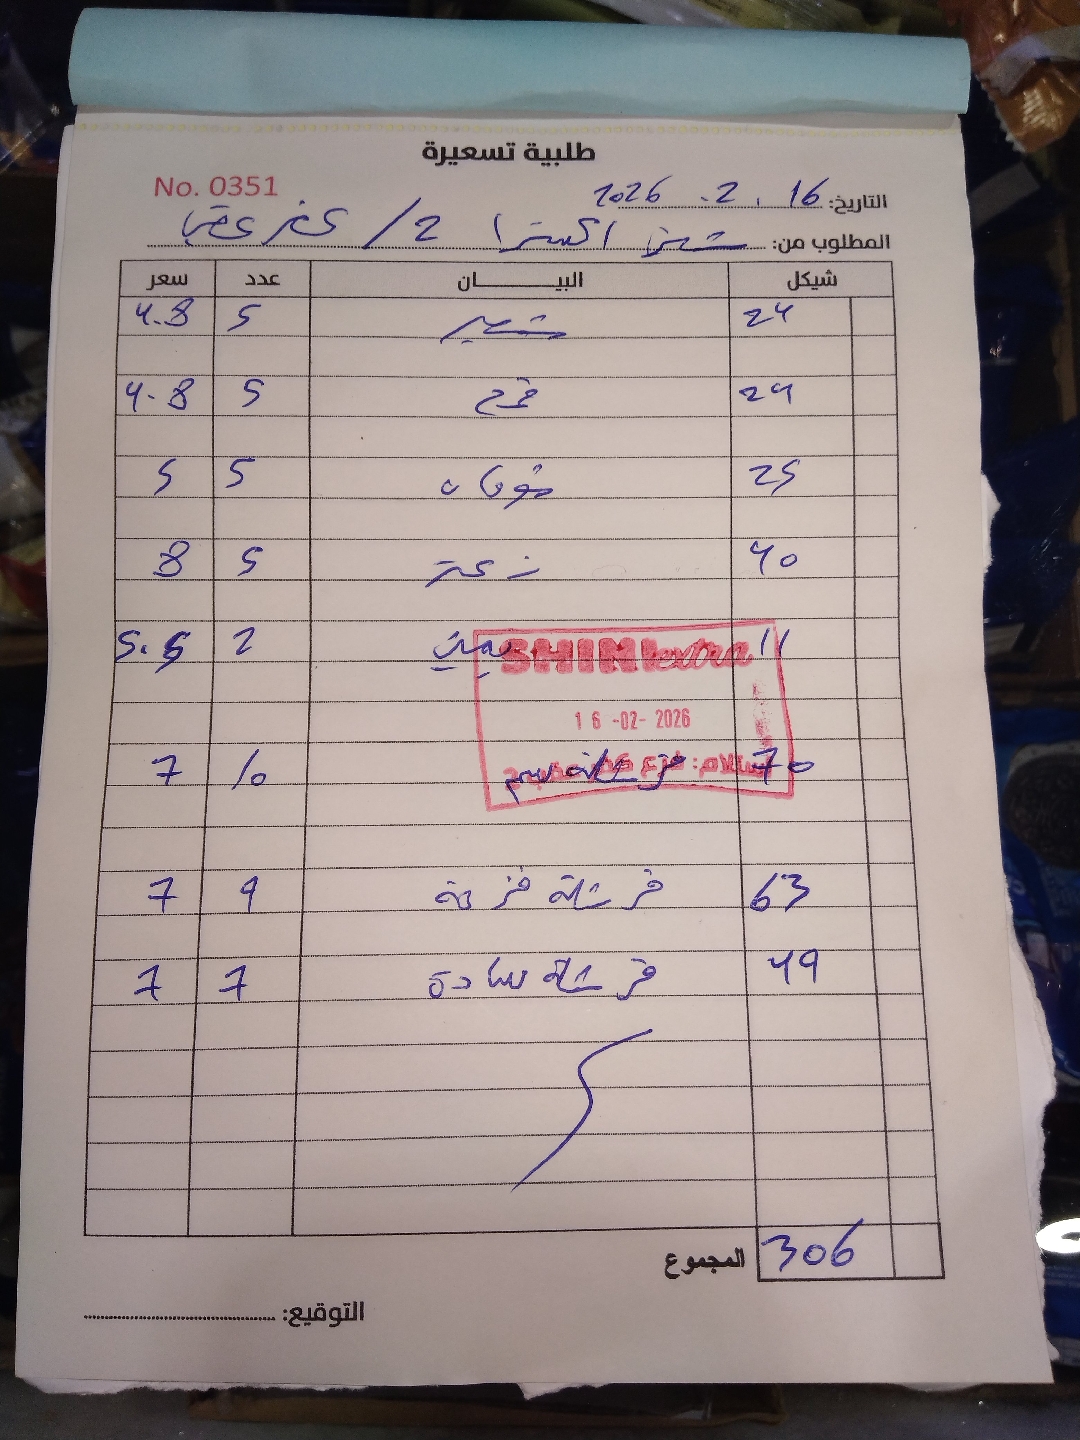 طلبية تسعيرة
No. 0351
التاريخ: 16 . 2 . 2026
المطلوب من: شيني اكسترا 2 /
شيكل البيـــــــان عدد سعر
24 شعير 5 4.8
24 قمح 5 4.8
25 شوفان 5 5
40 5 8
11 2 5.5
SHINI extra
16 -02- 2026
70 فرشلة سمسم 10 7
63 فرشلة قزحة 9 7
49 فرشلة سادة 7 7
المجموع 306
التوقيع: